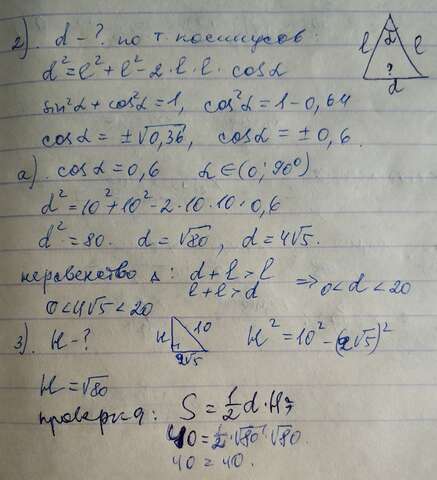 2). d - ? по т. косинусов:
d² = l² + l² - 2·l·l·cosα
sin²α + cos²α = 1, cos²α = 1 - 0,64
cosα = ±√0,36, cosα = ±0,6.
l α l
?
d
а). cosα = 0,6 α ∈ (0; 90°)
d² = 10² + 10² - 2·10·10·0,6
d² = 80. d = √80, d = 4√5.
неравенство Δ: d + l > l
l + l > d ⇒ 0 < d < 20
0 < 4√5 < 20
3). H - ? H 10 2√5 H² = 10² - (2√5)²
H = √80
проверка: S = ½ d·H;
40 = ½·√80·√80.
40 = 40.